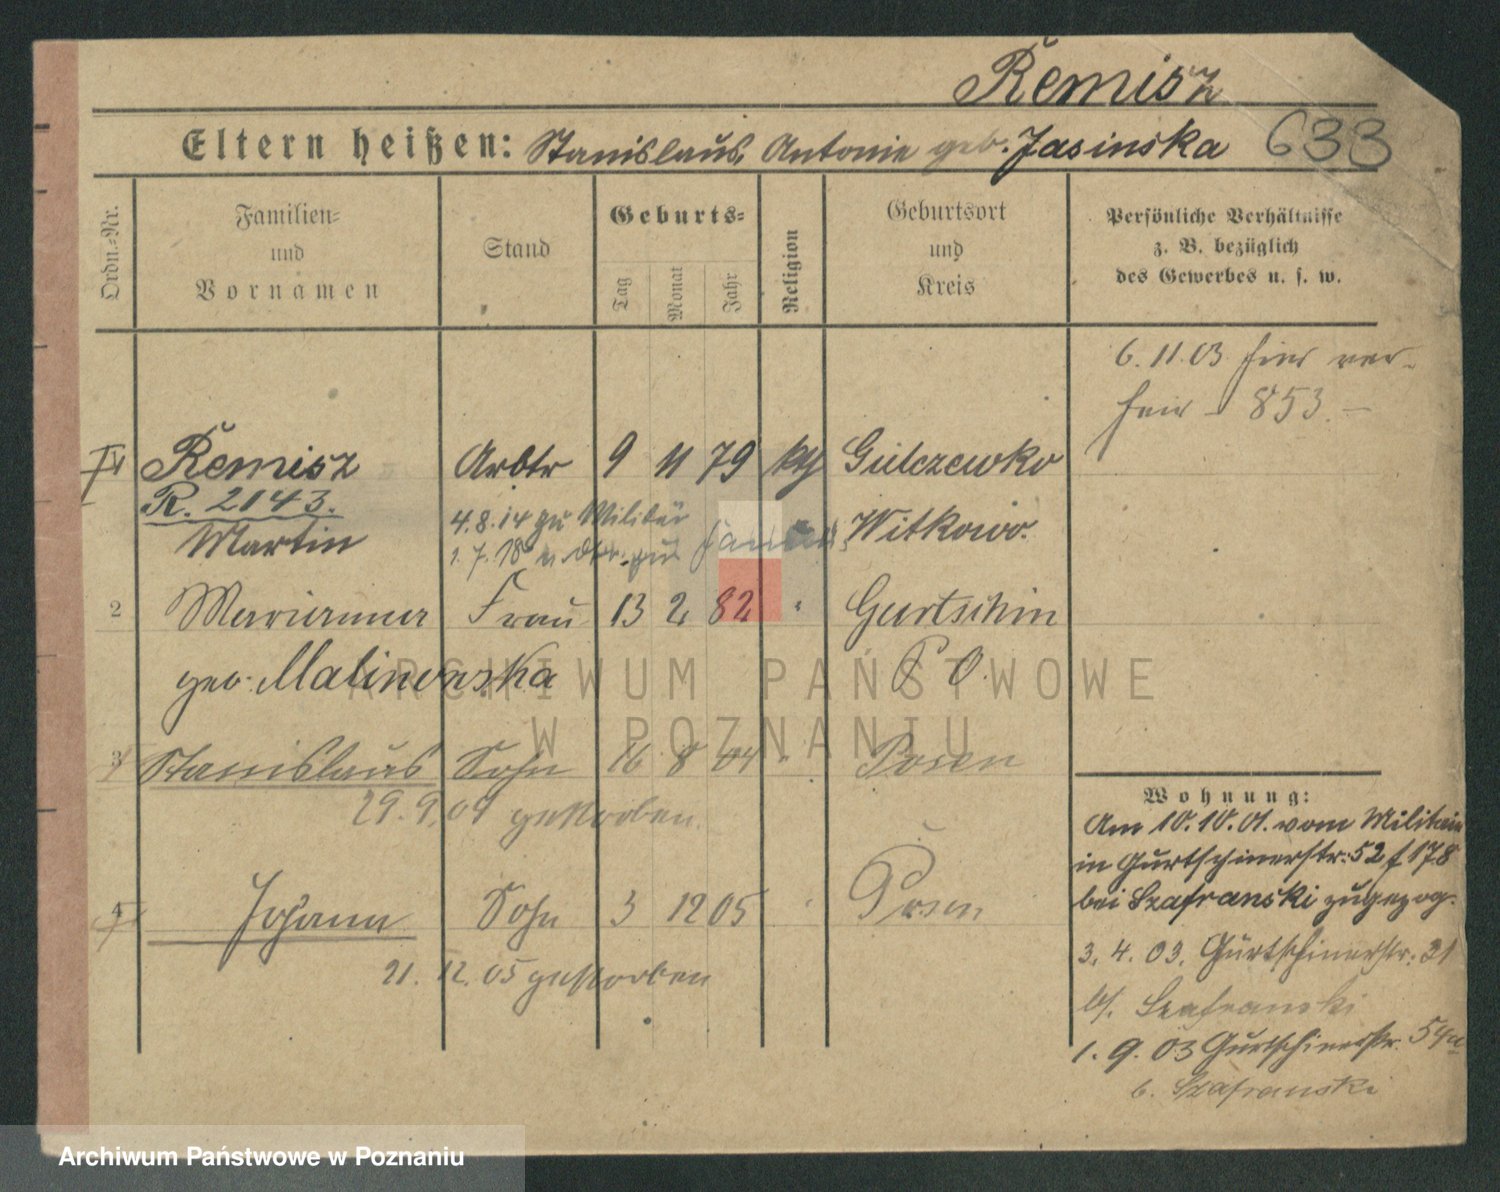 Remisz
Eltern heißen: Stanislaus, Antonie geb. Jasinska 633
Ordn.-Nr.
Familien-
und
Vornamen
Stand
Geburts-
Tag
Monat
Jahr
Religion
Geburtsort
und
Kreis
Persönliche Verhältnisse
z. B. bezüglich
des Gewerbes u. s. w.
6.11.03 hier ver-
heir - 853.-
1 Remisz Arbtr 9 11 79 kth Gulczewko
R. 2143.
Martin Witkowo.
4.8.14 zu Militär
1.7.18
2 Marianna Frau 13 2 82 " Gurtschin
geb. Malinowska P. O.
3 Stanislaus Sohn 16 8 04 " Posen
29.9.04 gestorben
4 Johann Sohn 3 12 05 " Posen
21.12.05 gestorben
Wohnung:
Am 10.10.01. vom Militair
in Gurtschinerstr. 52 f 178
bei Szafranski zugezog.
3.4.03. Gurtschinerstr. 21
b/. Szafranski
1.9.03 Gurtschinerstr. 54a
b. Szafranski
ARCHIWUM PAŃSTWOWE
W POZNANIU
Archiwum Państwowe w Poznaniu